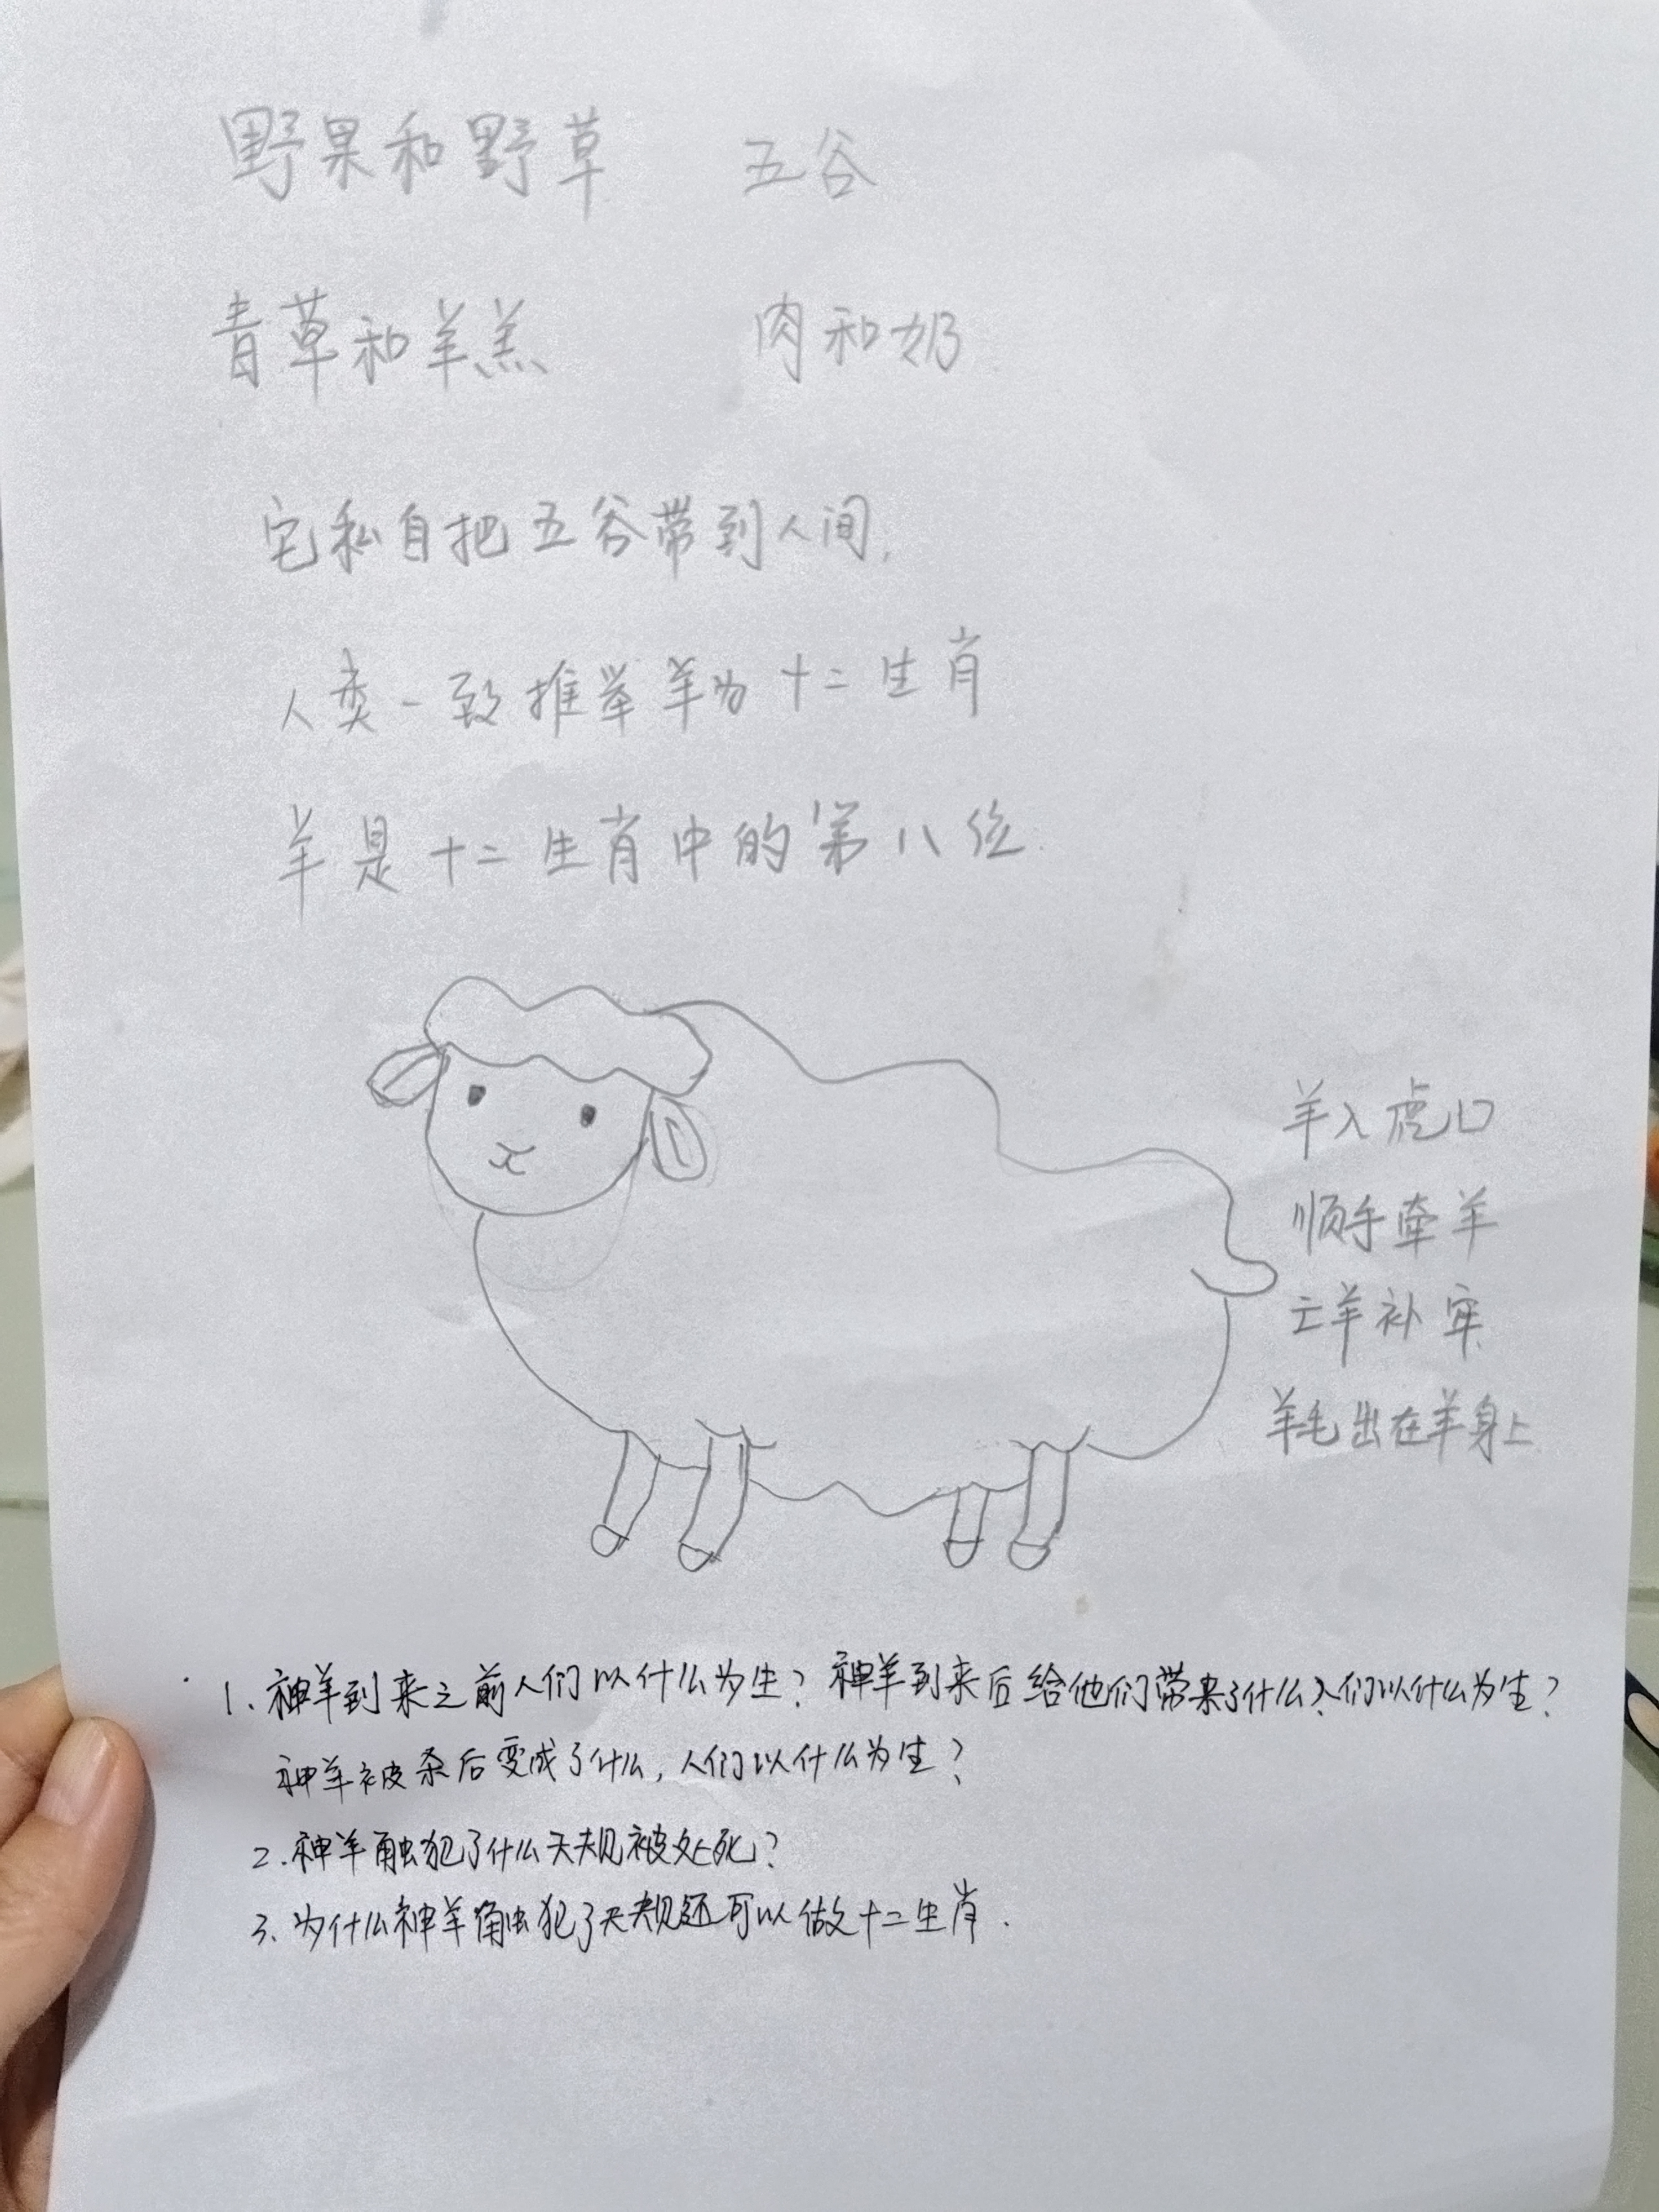 野果和野草 五谷
青草和羊羔 肉和奶
它私自把五谷带到人间,
人类一致推举羊为十二生肖
羊是十二生肖中的第八位.
羊入虎口
顺手牵羊
亡羊补牢
羊毛出在羊身上
1. 神羊到来之前人们以什么为生? 神羊到来后给他们带来了什么?人们以什么为生?
神羊被杀后变成了什么, 人们以什么为生?
2. 神羊触犯了什么天规被处死?
3. 为什么神羊触犯了天规还可以做十二生肖.